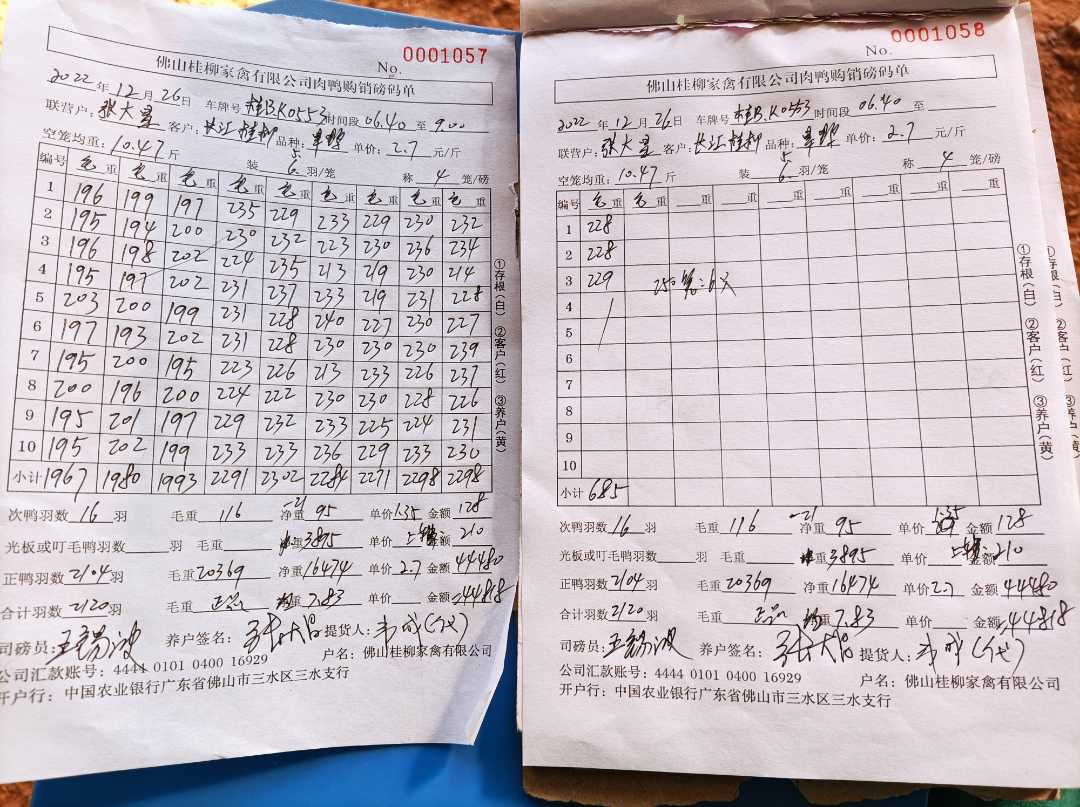 0001057
No.
佛山桂柳家禽有限公司肉鸭购销磅码单
2022年12月26日 车牌号 桂B.K0553 时间段 06.40 至 9.00
联营户:张大 客户:长江桂柳 品种: 单价:2.7元/斤
空笼均重:10.47斤 装 5 6.羽/笼 称 4 笼/磅
编号 毛重 毛重 毛重 毛重 毛重 毛重 毛重 毛重 毛重
1 196 199 197 235 229 233 229 230 232
2 195 194 200 230 232 223 230 236 234
3 196 198 202 224 235 213 219 230 214
4 195 197 202 231 237 233 219 231 228
5 203 200 199 231 228 240 227 230 227
6 197 193 202 231 228 230 230 230 239
7 195 200 195 223 226 213 233 226 237
8 200 196 200 224 222 230 230 228 226
9 195 201 197 229 232 233 225 224 231
10 195 202 199 233 233 236 229 233 230
小计 1967 1980 1993 2291 2302 2284 2271 2298 2298
次鸭羽数 16 羽 毛重 116 -21 净重 95 单价 1.35 金额 128
光板或叮毛鸭羽数 羽 毛重 重 3895 单价 金额 210
正鸭羽数 2104 羽 毛重 20369 净重 16474 单价 2.7 金额 44480
合计羽数 2120 羽 毛重 正品 均重 7.83 单价 金额 44818
司磅员: 养户签名: 提货人:
公司汇款账号:4444 0101 0400 16929 户名:佛山桂柳家禽有限公司
开户行:中国农业银行广东省佛山市三水区三水支行
①存根(白) ②客户(红) ③养户(黄)
0001058
No.
佛山桂柳家禽有限公司肉鸭购销磅码单
2022年12月26日 车牌号 桂B.K0553 时间段 06.40 至
联营户:张大 客户:长江桂柳 品种: 单价:2.7元/斤
空笼均重:10.47斤 装 5 6.羽/笼 称 4 笼/磅
编号 毛重 毛重 重 重 重 重 重 重 重
1 228
2 228
3 229 250笼:6只
4
5
6
7
8
9
10
小计 685
次鸭羽数 16 羽 毛重 116 -21 净重 95 单价 1.35 金额 128
光板或叮毛鸭羽数 羽 毛重 重 3895 单价 金额 210
正鸭羽数 2104 羽 毛重 20369 净重 16474 单价 2.7 金额 44480
合计羽数 2120 羽 毛重 正品 均重 7.83 单价 金额 44818
司磅员: 养户签名: 提货人:
公司汇款账号:4444 0101 0400 16929 户名:佛山桂柳家禽有限公司
开户行:中国农业银行广东省佛山市三水区三水支行
①存根(白) ②客户(红) ③养户(黄)